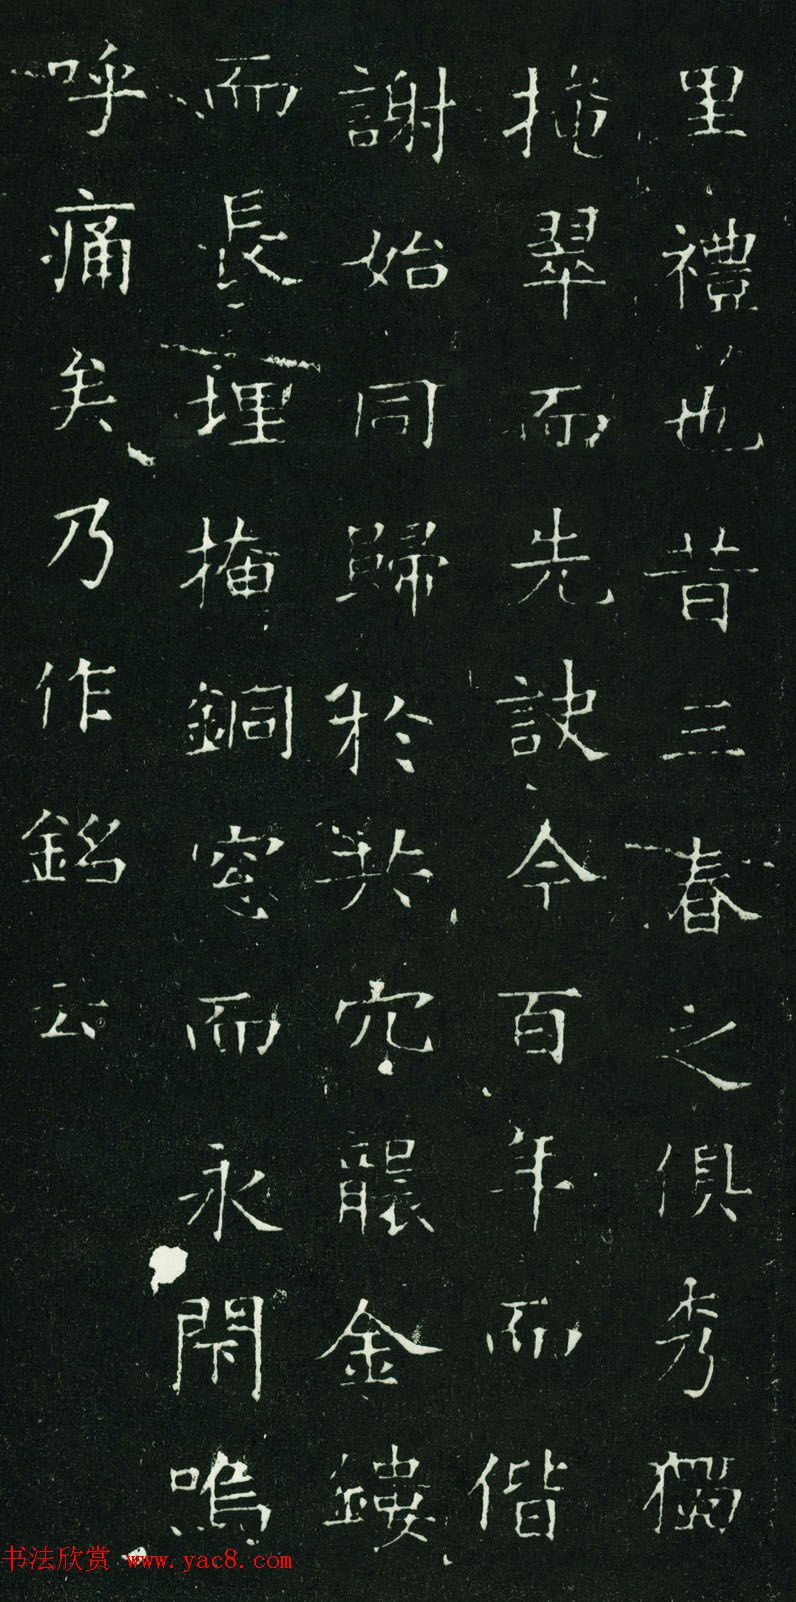 里禮也昔三春之俱秀獨
掩翠而先訣今百年而偕
謝始同歸於共穴襯金鏤
而長埋掩銅窓而永閇嗚
呼痛矣乃作銘云
书法欣赏 www.yac8.com